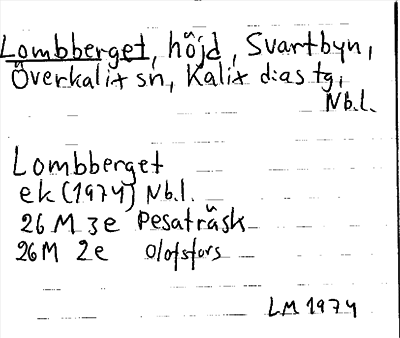 Lombberget, höjd, Svartbyn,
Överkalix sn, Kalix d:as tg,
Nb.l.
Lombberget
ek (1974) Nb.l.
26 M 3e Pesaträsk
26M 2e Olofsfors
LM 1974